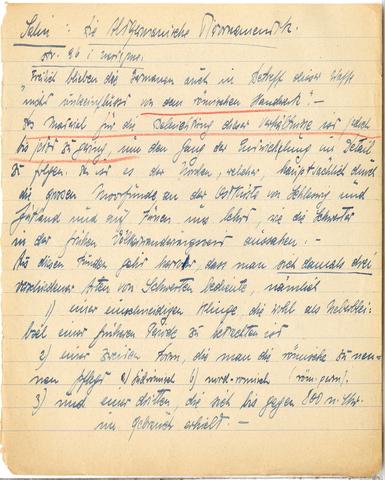 Salin: Die Altgermanische Thierornamentik.
Str. 96 i
"Freilich blieben die Germanen auch in Betreff dieser Waffe
nicht unbeeinflusst von dem römischen Handwerk". -
Das Material für die Beleuchtung dieser Verhältnisse ist jedoch
bis jetzt zu gering, um den Gang der Entwickelung im Detail
zu folgen. Es ist der Norden, welcher, hauptsächlich durch
die grossen Moorfunde an der Ostküste von Schleswig und
Jütland und auf Fünen uns lehrt, wie die Schwerter
in der frühen Völkerwanderungszeit aussahen. -
Aus diesen Funden geht hervor, dass man sich damals drei
verschiedener Arten von Schwerten bediente, nämlich
1) einer einschneidigen Klinge, die wohl als Ueberblei-
bsel einer früheren Periode zu betrachten ist
2) einer zweiten Form, die man die römische zu nen-
nen pflegt a) südrömisch b) nord-römisch (röm. germ.)
3) und einer dritten, die sich bis gegen 800 n. Chr.
im Gebrauch erhielt. -